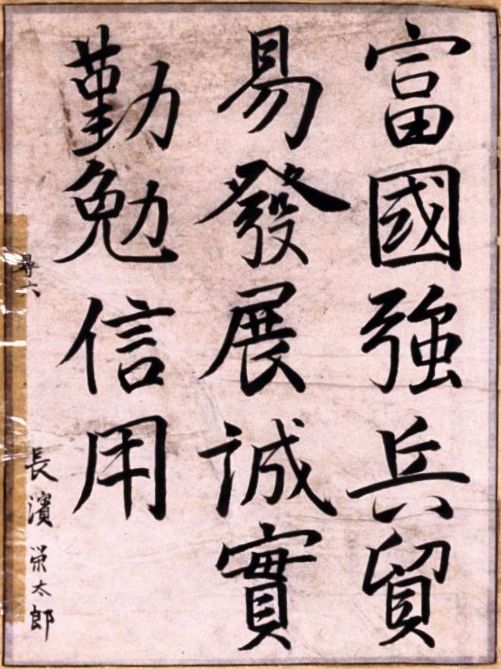 富國強兵貿
易發展誠實
勤勉信用
尋六
長濱栄太郎